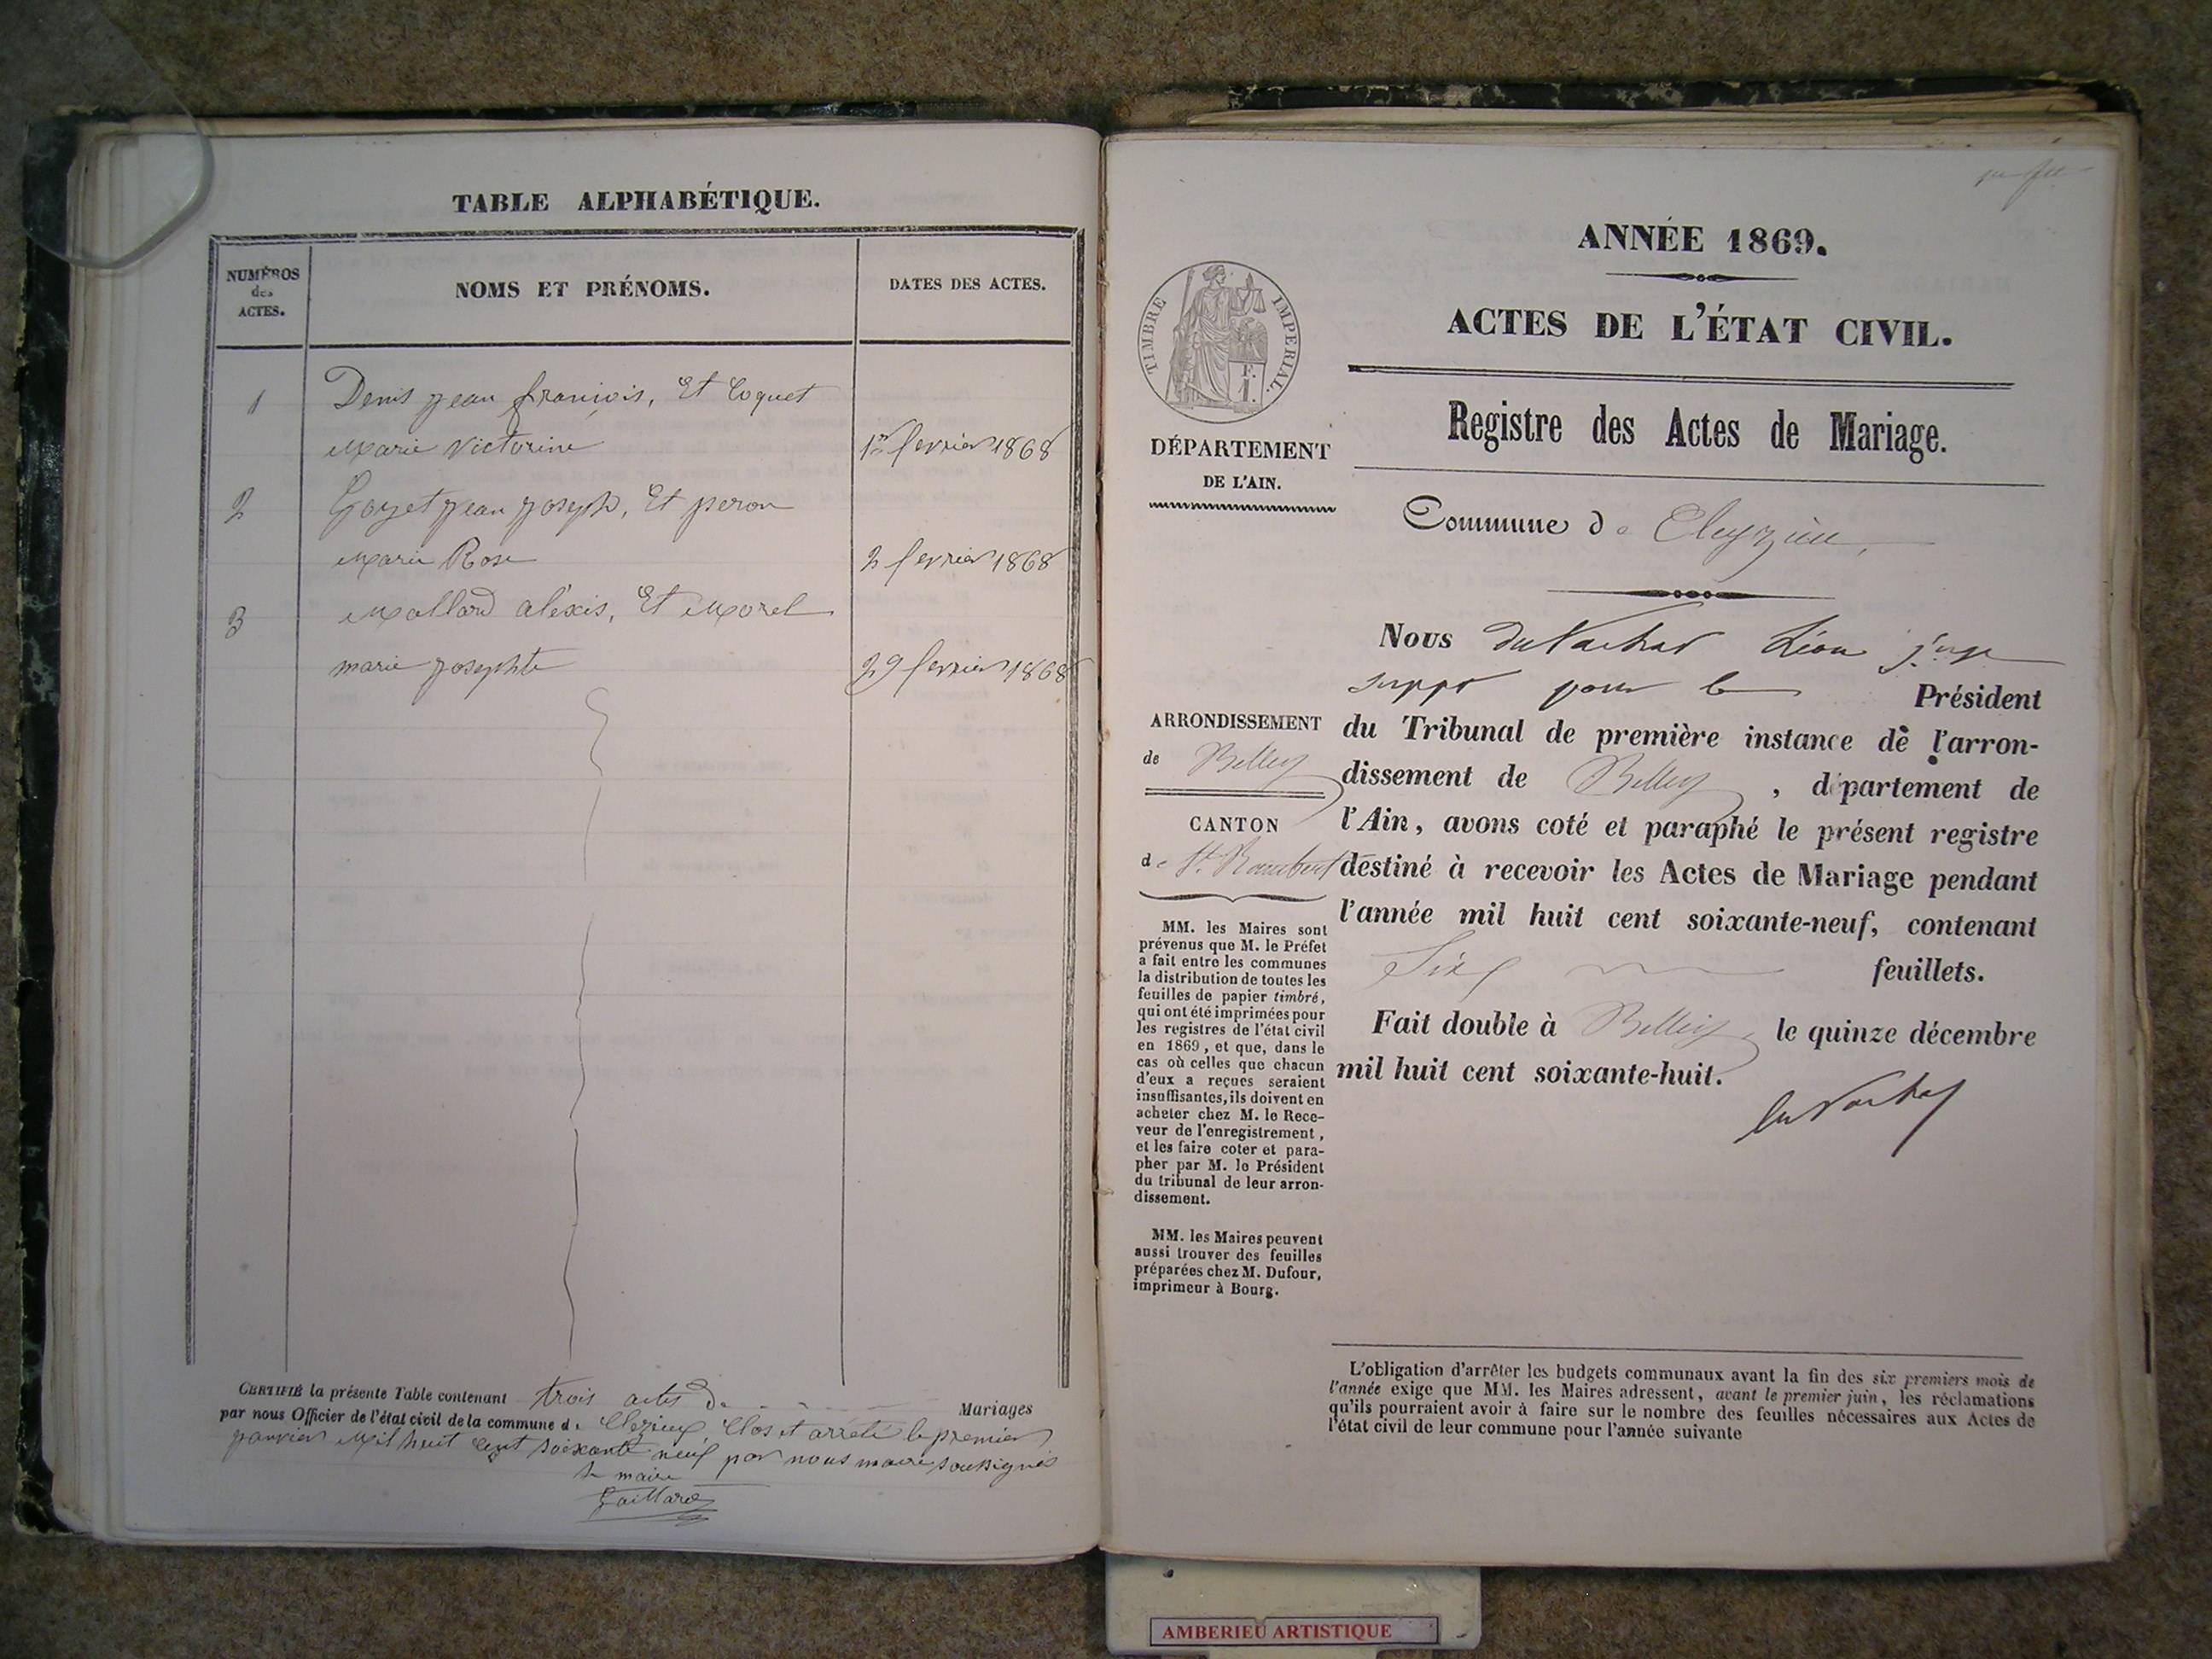 TABLE ALPHABÉTIQUE.
NUMÉROS
des
ACTES.
NOMS ET PRÉNOMS.
DATES DES ACTES.
1 Denis jean francois, Et Coquet
Marie Victorine 1er fevrier 1868
2 Goyet jean joseph, Et peron
Marie Rose 2 fevrier 1868
3 Mallard alexis, Et Morel
marie josephte 29 fevrier 1868
CERTIFIÉ la présente Table contenant trois actes de Mariages
par nous Officier de l'état civil de la commune de Cleyzieu, Clos et arrêté le premier
janvier Mil huit cent soixante neuf par nous maire soussigné
le maire
Gaillard
ANNÉE 1869.
ACTES DE L'ÉTAT CIVIL.
Registre des Actes de Mariage.
TIMBRE IMPÉRIAL.
DÉPARTEMENT
DE L'AIN.
Commune de Cleyzieu,
Nous Léon juge
suppt pour le Président
du Tribunal de première instance de l'arron-
dissement de Belley, département de
l'Ain, avons coté et paraphé le présent registre
destiné à recevoir les Actes de Mariage pendant
l'année mil huit cent soixante-neuf, contenant
Six feuillets.
Fait double à Belley le quinze décembre
mil huit cent soixante-huit.
ARRONDISSEMENT
de Belley
CANTON
de St. Rambert
MM. les Maires sont
prévenus que M. le Préfet
a fait entre les communes
la distribution de toutes les
feuilles de papier timbré,
qui ont été imprimées pour
les registres de l'état civil
en 1869, et que, dans le
cas où celles que chacun
d'eux a reçues seraient
insuffisantes, ils doivent en
acheter chez M. le Rece-
veur de l'enregistrement,
et les faire coter et para-
pher par M. le Président
du tribunal de leur arron-
dissement.
MM. les Maires peuvent
aussi trouver des feuilles
préparées chez M. Dufour,
imprimeur à Bourg.
L'obligation d'arrêter les budgets communaux avant la fin des six premiers mois de
l'année exige que MM. les Maires adressent, avant le premier juin, les réclamations
qu'ils pourraient avoir à faire sur le nombre des feuilles nécessaires aux Actes de
l'état civil de leur commune pour l'année suivante
AMBERIEU ARTISTIQUE